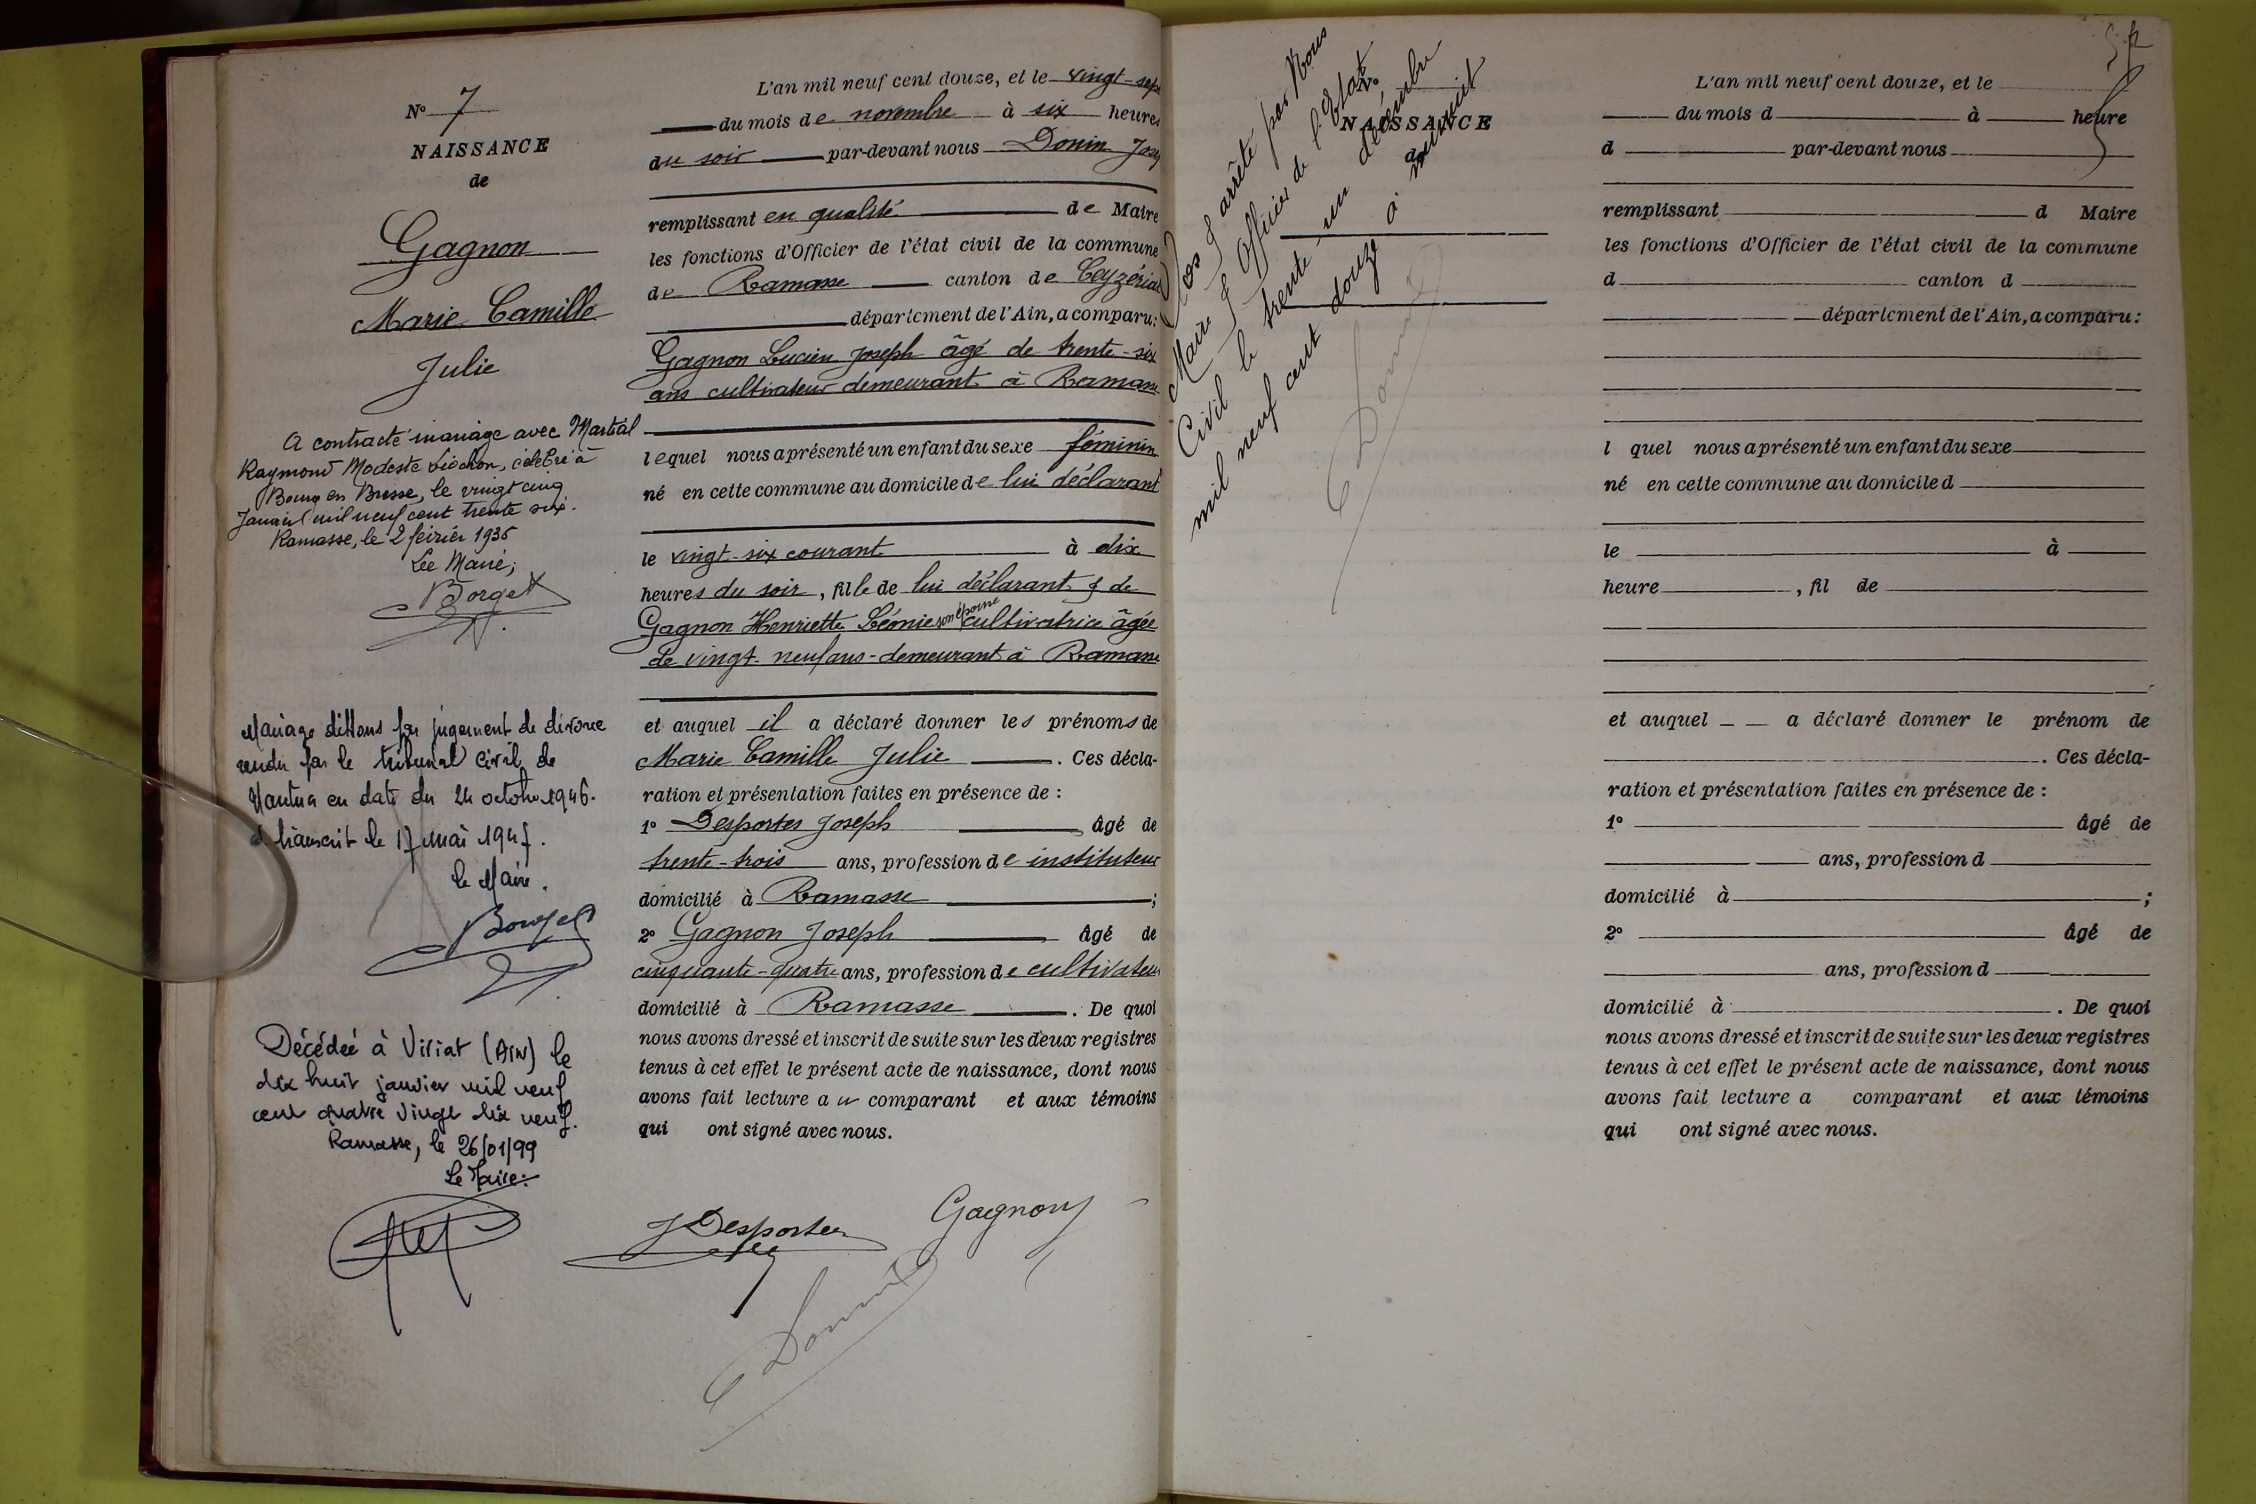 N° 7
NAISSANCE
de
Gagnon
Marie Camille
Julie
A contracté mariage avec Martial
Raymond Modeste célébré à
Bourg en Bresse, le vingt cinq
Janvier mil neuf cent trente six.
Ramasse, le 2 février 1936
Le Maire;
Borget
Mariage dissous par jugement de divorce
rendu par le tribunal civil de
Nantua en date du 24 octobre 1946.
et transcrit le 17 mai 1947.
le Maire.
Borget
Décédée à Viriat (AIN) le
dix huit janvier mil neuf
cent quatre vingt dix neuf.
Ramasse, le 26/01/99
Le Maire:
L'an mil neuf cent douze, et le vingt-sept
du mois de novembre à six heures
du soir par-devant nous Donin Josep
remplissant en qualité de Maire
les fonctions d'Officier de l'état civil de la commune
de Ramasse canton de Ceyzériat
département de l'Ain, a comparu:
Gagnon Lucien Joseph âgé de trente-six
ans cultivateur demeurant à Ramasse
lequel nous a présenté un enfant du sexe féminin
né en cette commune au domicile de lui déclarant
le vingt-six courant à dix
heures du soir, fille de lui déclarant & de
Gagnon Henriette Léonie son épouse cultivatrice âgée
de vingt-neuf ans-demeurant à Ramasse
et auquel il a déclaré donner les prénoms de
Marie Camille Julie. Ces décla-
ration et présentation faites en présence de :
1° Desportes Joseph âgé de
trente-trois ans, profession de instituteur
domicilié à Ramasse ;
2° Gagnon Joseph âgé de
cinquante-quatre ans, profession de cultivateur
domicilié à Ramasse. De quoi
nous avons dressé et inscrit de suite sur les deux registres
tenus à cet effet le présent acte de naissance, dont nous
avons fait lecture au comparant et aux témoins
qui ont signé avec nous.
J Desportes
Gagnon
Donin
Clos & arrêté par Nous
Maire & Officier de l'Etat
Civil le trente-un décembre
mil neuf cent douze à minuit
Donin
N°
NAISSANCE
de
L'an mil neuf cent douze, et le
du mois d à heure
d par-devant nous
remplissant d Maire
les fonctions d'Officier de l'état civil de la commune
d canton d
département de l'Ain, a comparu:
l quel nous a présenté un enfant du sexe
né en cette commune au domicile d
le à
heure , fil de
et auquel a déclaré donner le prénom de
. Ces décla-
ration et présentation faites en présence de :
1° âgé de
ans, profession d
domicilié à ;
2° âgé de
ans, profession d
domicilié à . De quoi
nous avons dressé et inscrit de suite sur les deux registres
tenus à cet effet le présent acte de naissance, dont nous
avons fait lecture a comparant et aux témoins
qui ont signé avec nous.